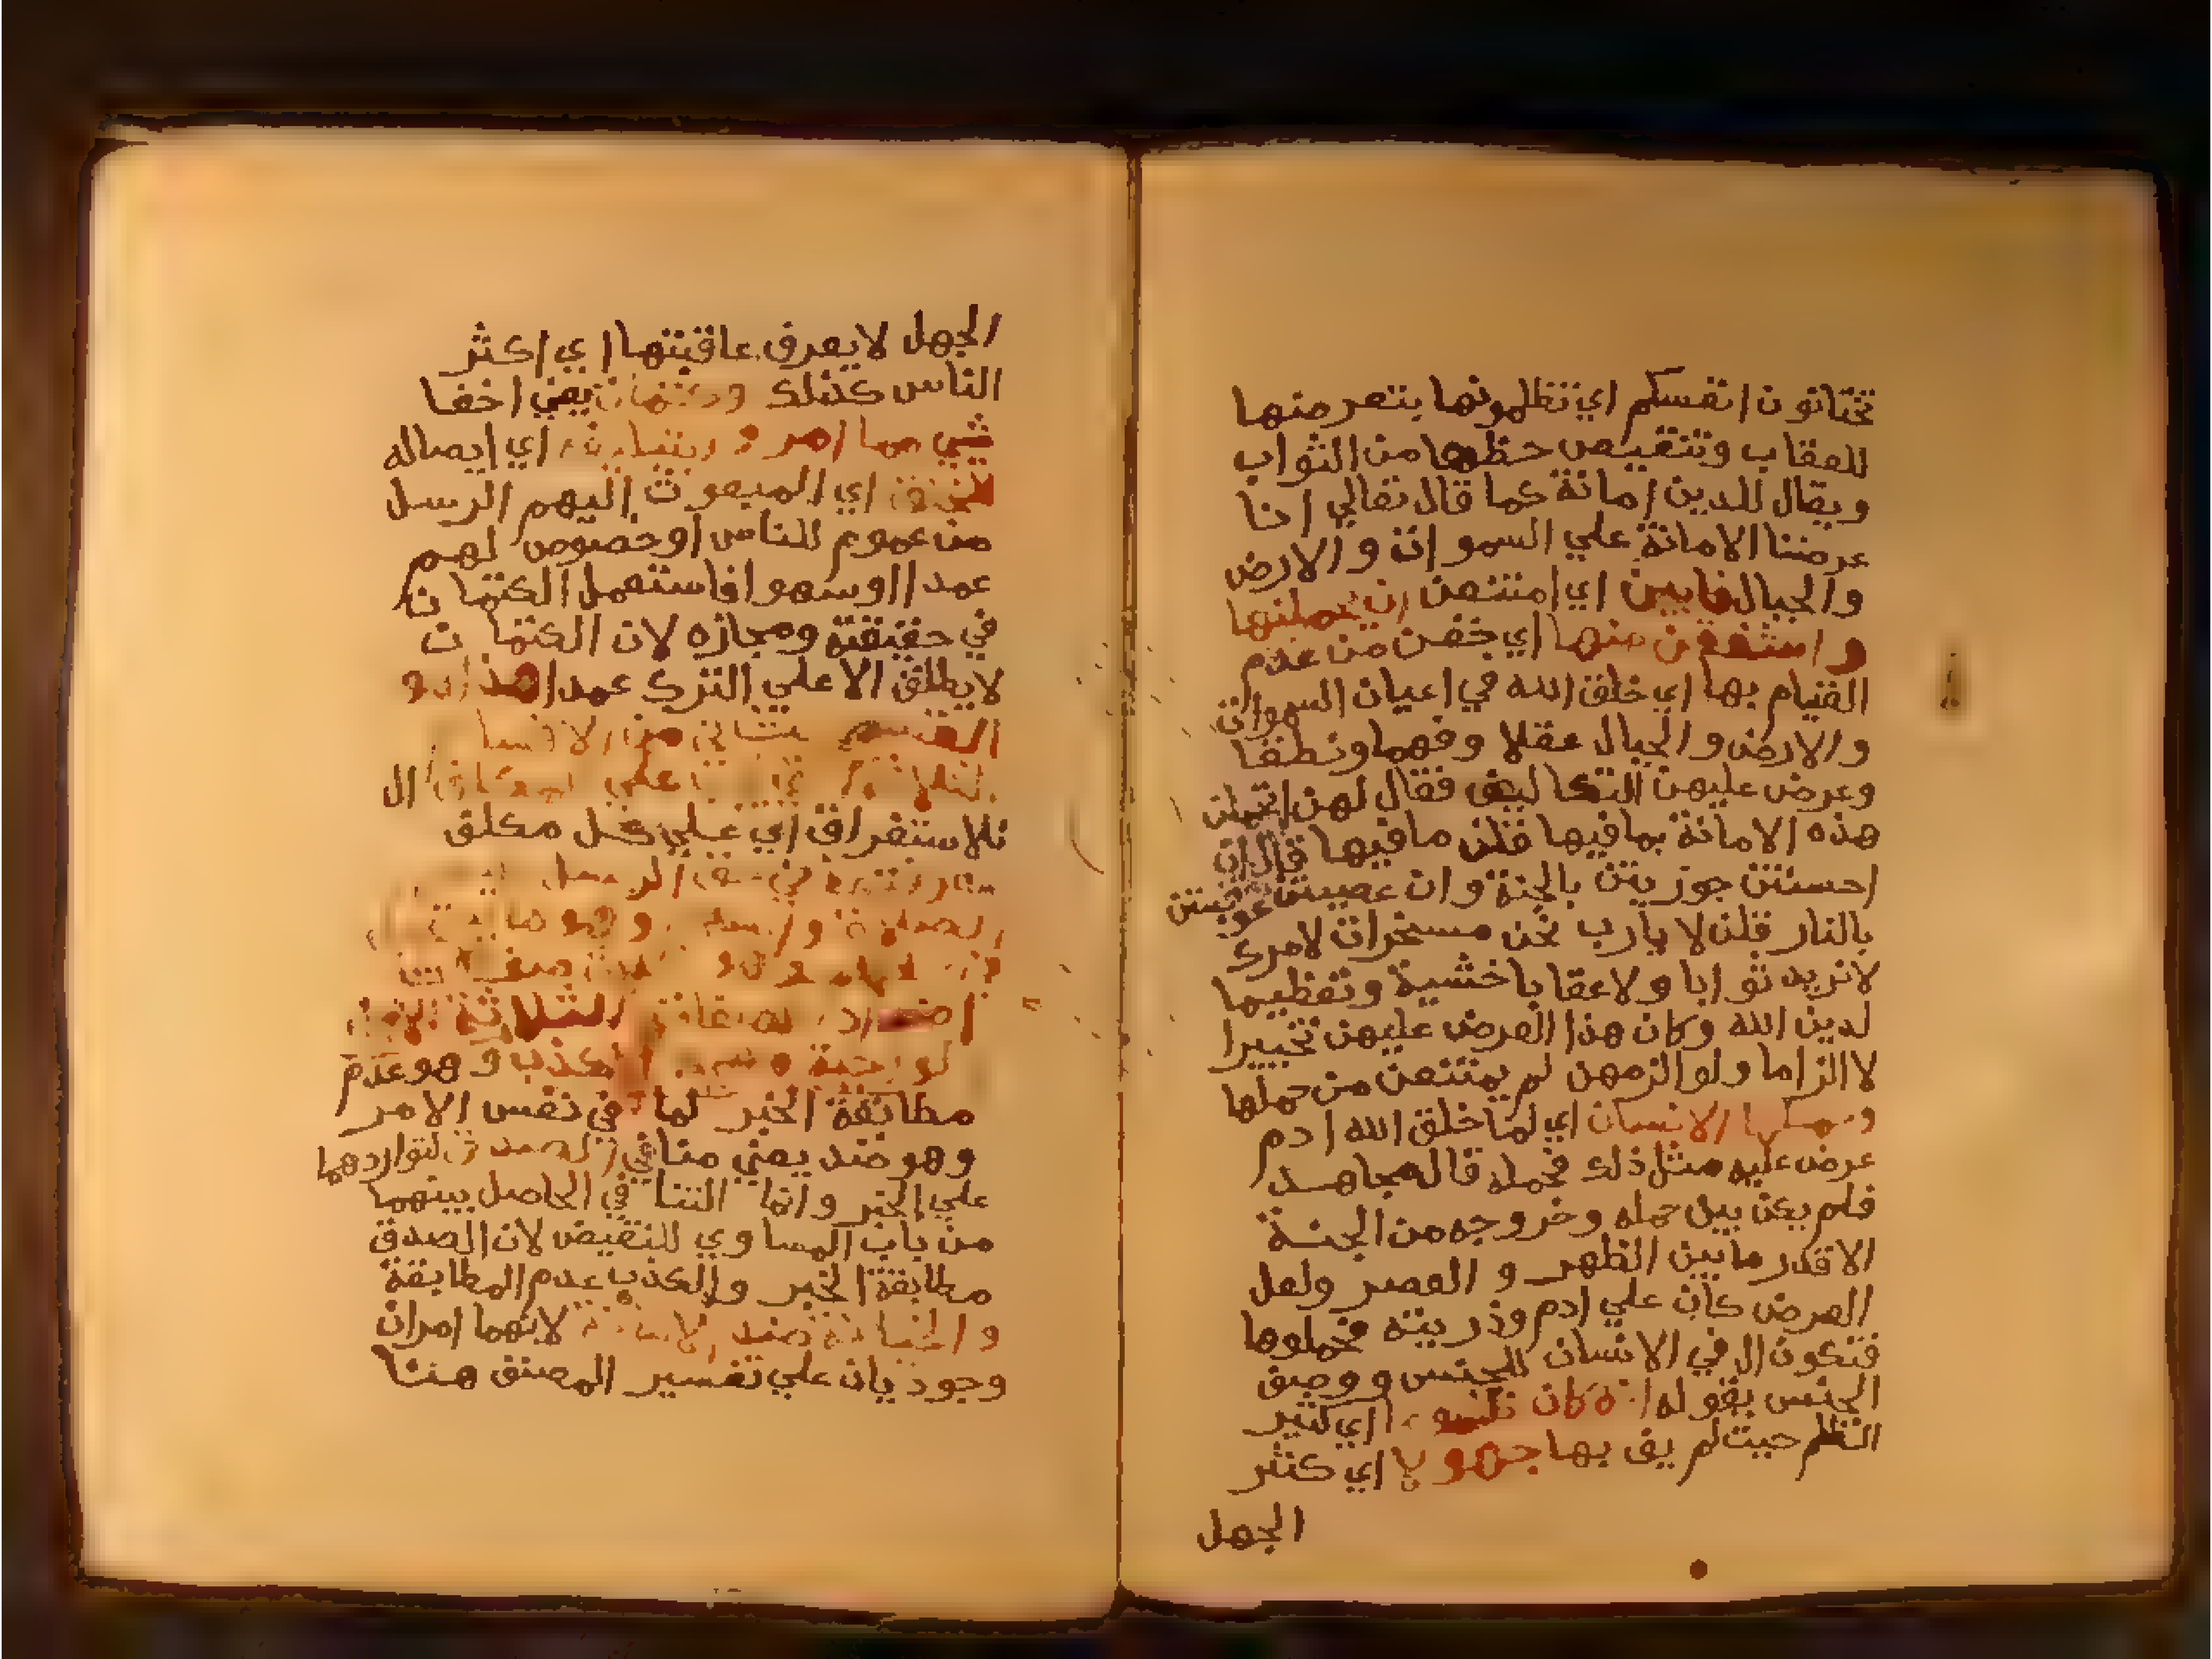 تختانون انفسكم اي تظلمونها بتعرضها
للعقاب وتنقيص حظها من الثواب
ويقال للدين امانة كما قال تعالي انا
عرضنا الامانة علي السموات والارض
والجبال فابين اي امتنعن ان يحملنها
واشفقن منها اي خفن من عدم
القيام بها اي خلق الله في اعيان السموات
والارض والجبال عقلا وفهما ونطقا
وعرض عليهن التكاليف فقال لهن اتحملن
هذه الامانة بما فيها قلن ما فيها قال ان
احسنتن جوزيتن بالجنة وان عصيتن عوقبتن
بالنار قلن لا يارب نحن مسخرات لامرك
لا نريد ثوابا ولا عقابا خشية وتعظيما
لدين الله وكان هذا العرض عليهن تخييرا
لا الزاما ولو الزمهن لم يمتنعن من حملها
وحملها الانسان اي لما خلق الله ادم
عرض عليه مثل ذلك فحمله قاله مجاهد
فلم يكن بين حمله وخروجه من الجنة
الا قدر ما بين الظهر و العصر ولعل
العرض كان علي ادم وذريته فحملوها
فتكون ال في الانسان للجنس ووصف
الجنس بقوله انه كان ظلوما اي كثير
الظلم حيث لم يف بها جهولا اي كثير
الجهل
الجهل لا يعرف عاقبتها اي اكثر
الناس كذلك وكتمان يعني اخفا
شي مما امروا اي ايصاله
للخلق اي المبعوث اليهم الرسل
من عموم للناس او خصوص لهم
عمدا او سهوا فاستعمل الكتمان
في حقيقته ومجازه لان الكتمان
لا يطلق الا علي الترك عمدا هذا هو
القسم الثاني من الاقسا
علي ال
للاستغراق اي علي كل مكلف
في حق الرسل
وهو
الثلاثة
الكذب وهو عدم
مطابقة الخبر لما في نفس الامر
وهو ضد يعني منافي الصدق لتواردهما
علي الخبر وانما التنافي الحاصل بينهما
من باب المساوي للنقيض لان الصدق
مطابقة الخبر والكذب عدم المطابقة
والخيانة ضد الامانة لانهما امران
وجوديان علي تفسير المصنف هنا